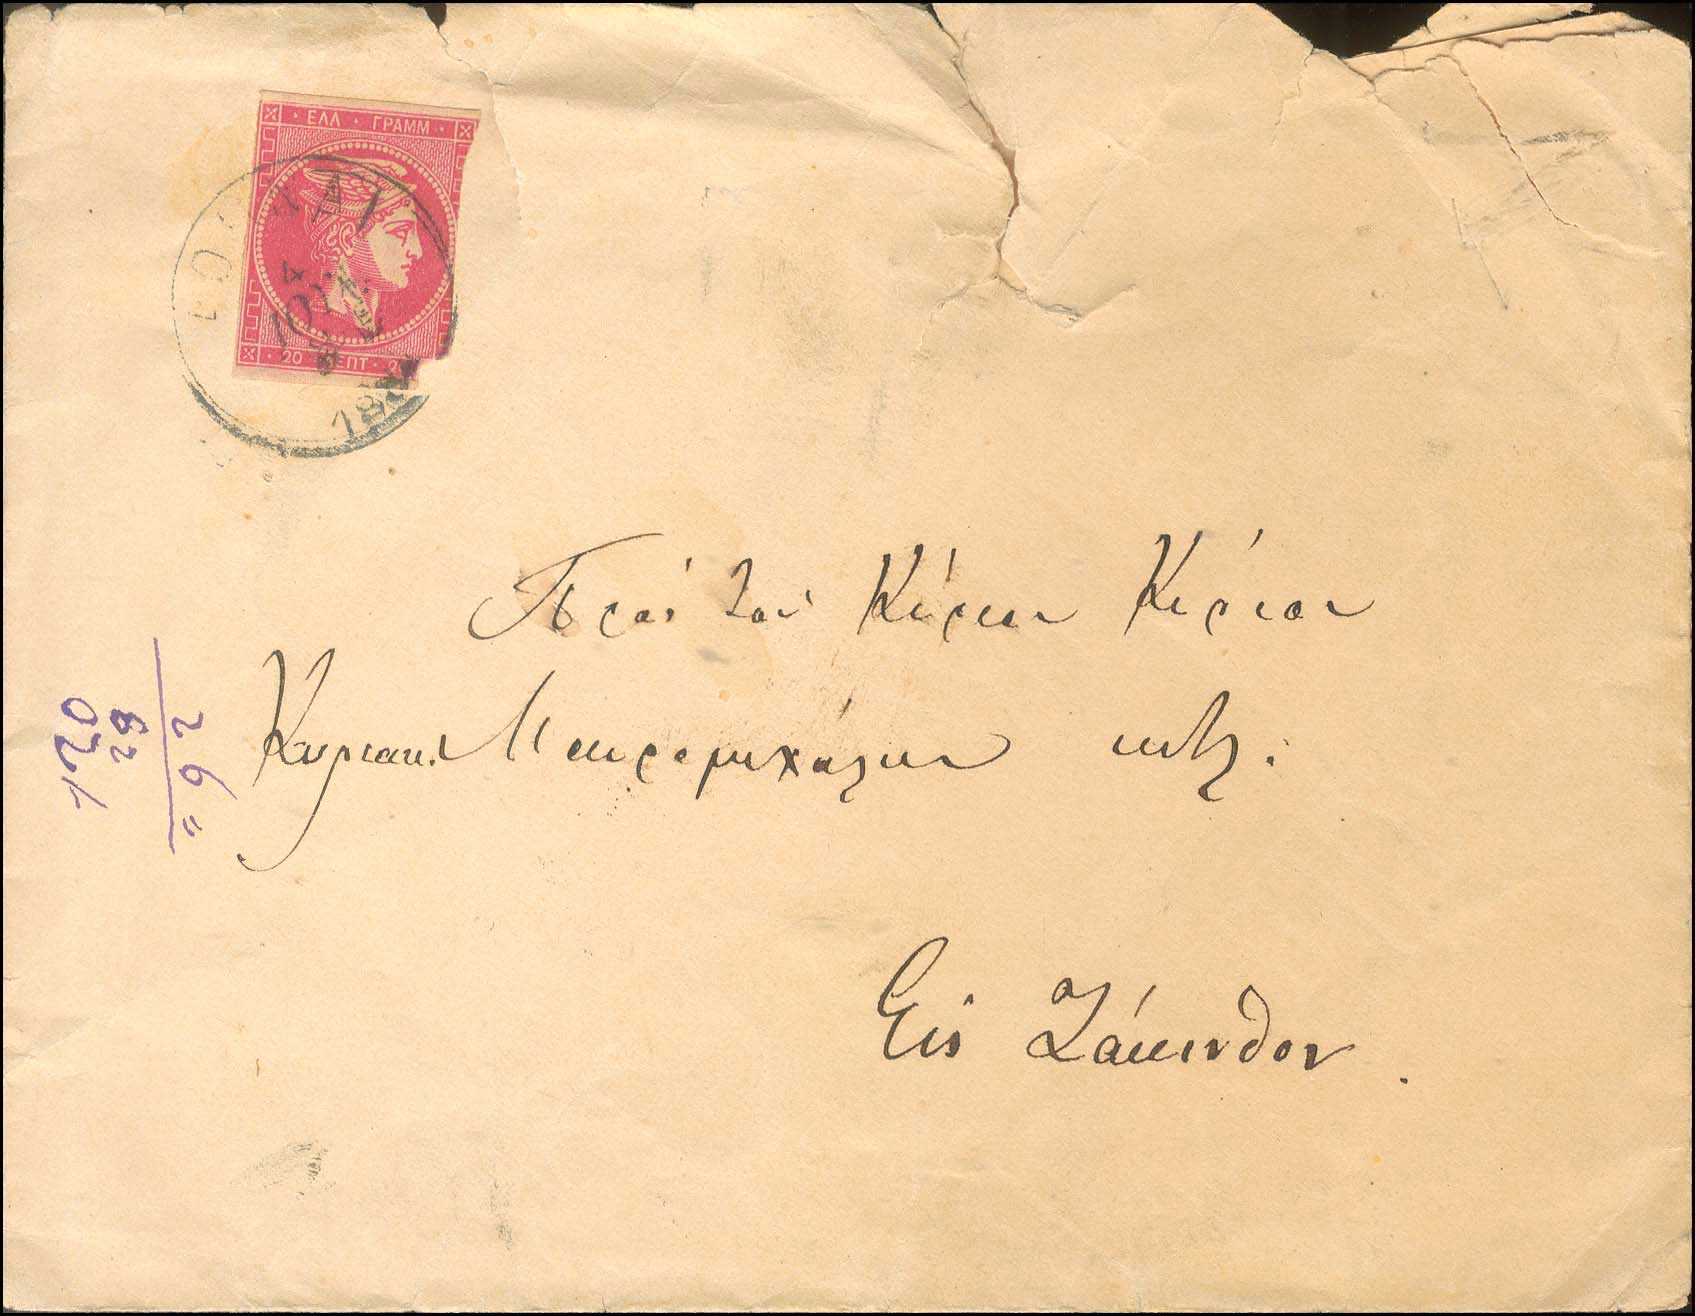 ΕΛΛ · ΓΡΑΜΜ ·
4
ΙΟΥΝ.
20 ΛΕΠΤ · 20
Πρὸς τὸν Κύριον Κύριον
Κυριακ. Μαυρομιχάλην κτλ.
Εἰς Ζάκυνθον.
120